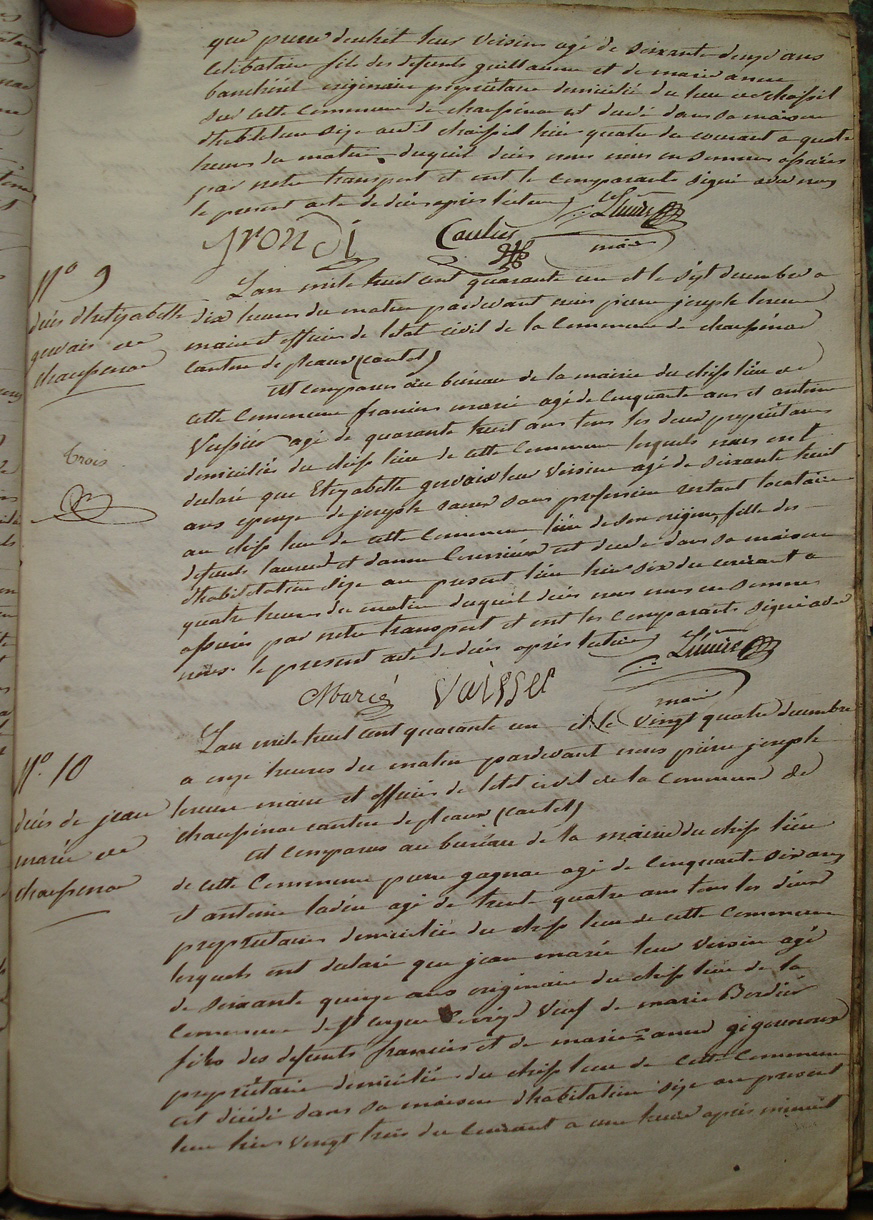 que pierre deuhit leur voisin agé de soixante douze ans
celibataire fils des defunts guillaume et de marie anne
originaire propriétaire domicilié du lieu de chaissil
sur cette Commune de chaussenac est decédé dans sa maison
d'habitation size audit chaissil hier quatre du courant a quatre
heures du matin duquel décès nous nous sommes assurés
par notre transport et ont les comparants signé avec nous
le present acte de décès après lecture
maire
N° 9
décès d'helizabette
gervais de
chaussenac
trois
L'an mile huit cent quarante un et le sept decembre a
dix heures du matin pardevant nous pierre joseph
maire et officier de l'etat civil de la Commune de chaussenac
canton de pleaux (cantal)
est comparus au bureau de la mairie du chef lieu de
cette Commune francois marié agé de Cinquante ans et antoine
Vaissier agé de quarante huit ans tous les deux propriétaires
domiciliés du chef lieu de cette Commune lesquels nous ont
déclaré que Elizabette gervais leur voisine agé de soixante huit
ans epouze de joseph sans profession restant locataire
au chef lieu de cette Commune lieu de son origine, fille des
defunts laurent et d'anne est decedé dans sa maison
d'habitation size au present lieu hier six du courant a
quatre heures du matin duquel décès nous nous en sommes
assurés par notre transport et ont les Comparants signé avec
nous le present acte de décès après lecture
Marié Vaisset
maire
N° 10
décès de jean
marié de
chaussenac
L'an mile huit cent quarante un et le vingt quatre decembre
a onze heures du matin pardevant nous pierre joseph
maire et officier de l'etat civil de la Commune de
chaussenac canton de pleaux (cantal)
est comparus au bureau de la mairie du chef lieu
de cette Commune pierre gagnac agé de Cinquante six ans
et antoine agé de trente quatre ans tous les deux
propriétaires domiciliés du chef lieu de cette Commune
lesquels ont déclaré que jean marié leur voisin agé
de soixante quinze ans originaire du chef lieu de la
Commune de veuf de marie Bordier
fils des defunts francois et de marie anne gigounoux
propriétaire domicilié du chef lieu de cette Commune
est décédé dans sa maison d'habitation size au present
lieu hier vingt trois du Courant a une heure après minuit